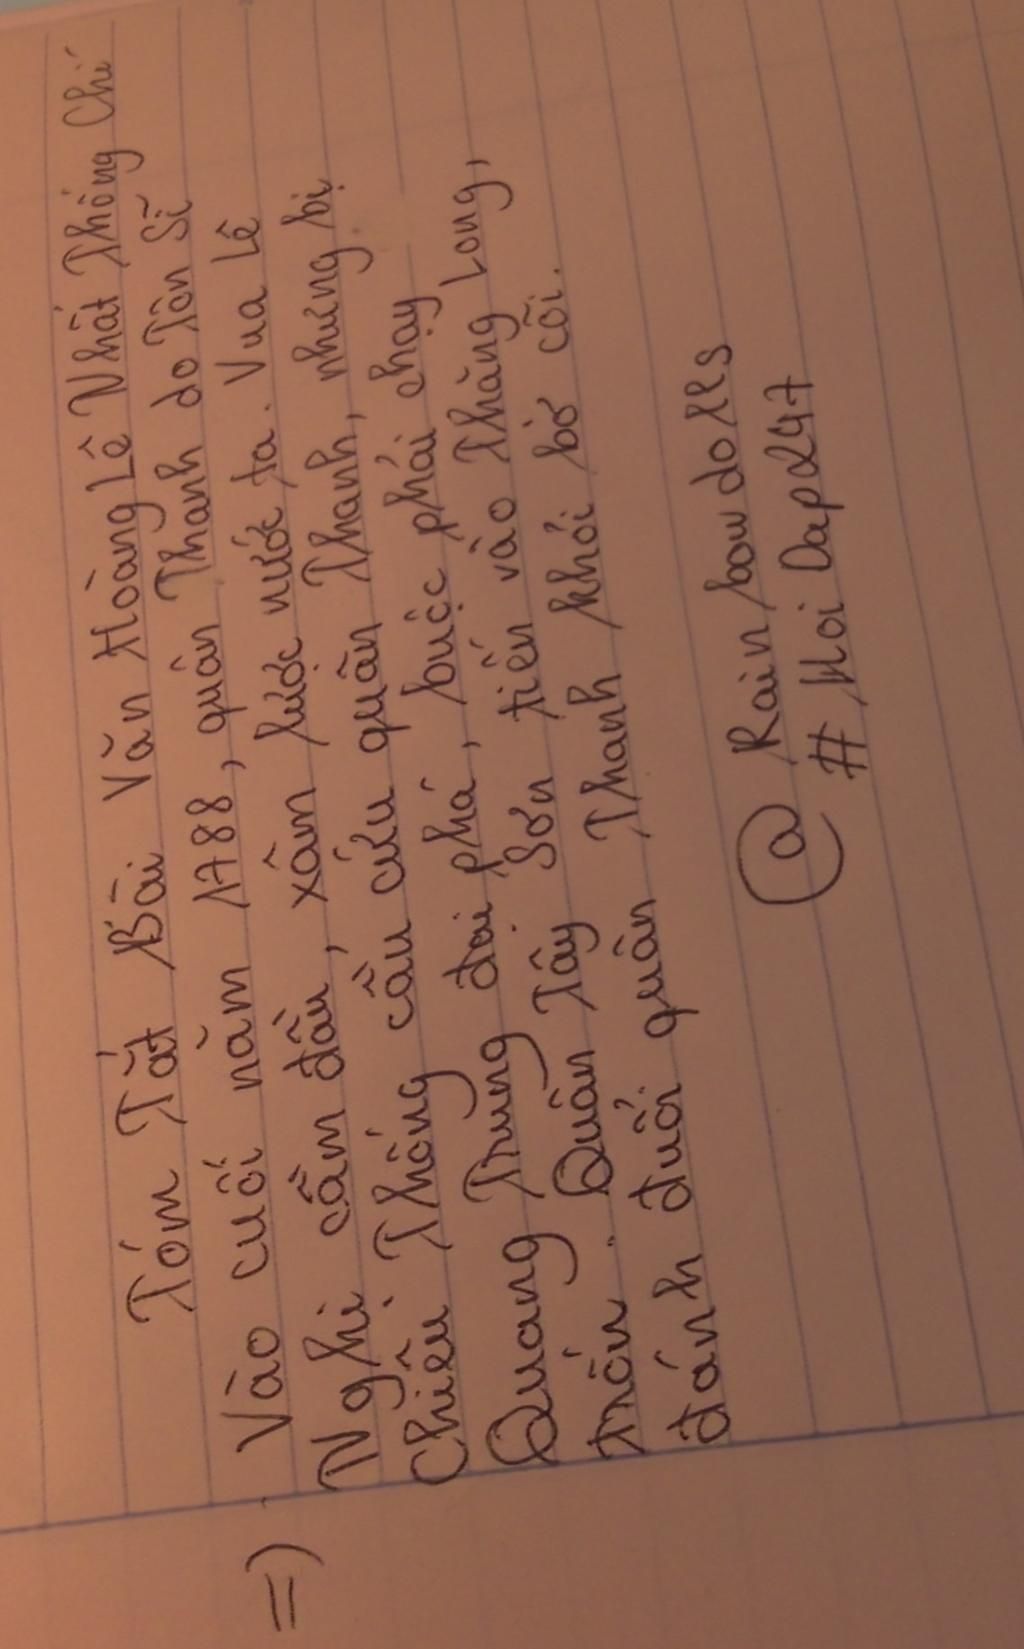 Tóm Tắt Bài Văn Hoàng Lê Nhất Thống Chí
=) Vào cuối năm 1788, quân Thanh do Tôn Sĩ
Nghị cầm đầu, xâm lược nước ta. Vua Lê
Chiêu Thống cầu cứu quân Thanh, nhưng bị
Quang Trung đại phá, buộc phải chạy
trốn. Quân Tây Sơn tiến vào Thăng Long,
đánh đuổi quân Thanh khỏi bờ cõi.
@ Rainbowdolls
# HoiDap247